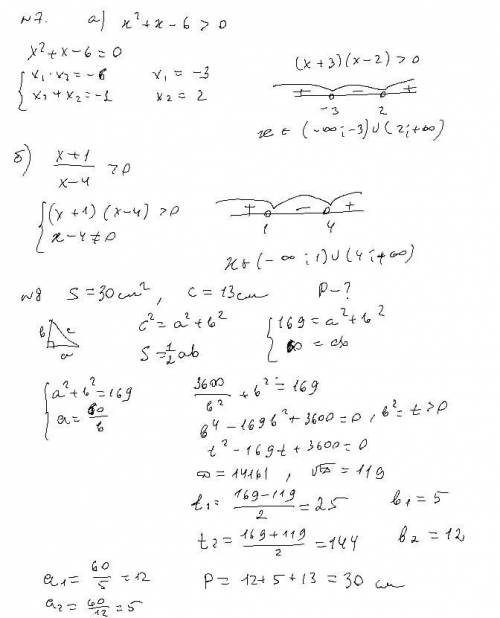 №7. а) x² + x - 6 > 0
x² + x - 6 = 0
{ x₁ · x₂ = -6   x₁ = -3
x₂ + x₂ = -1   x₂ = 2
(x+3)(x-2) > 0
+ - +
-3 2
x ∈ (-∞; -3) ∪ (2; +∞)
б) (x+1)/(x-4) > 0
{ (x+1)(x-4) > 0
x - 4 ≠ 0
+ - +
1 4
x ∈ (-∞; 1) ∪ (4; +∞)
№8 S = 30 см², c = 13 см P - ?
b c
a
c² = a² + b²
S = ½ab
{ 169 = a² + b²
60 = ab
{ a² + b² = 169
a = 60/b
3600/b² + b² = 169
b⁴ - 169b² + 3600 = 0, b² = t > 0
t² - 169t + 3600 = 0
D = 14161, √D = 119
t₁ = (169-119)/2 = 25   b₁ = 5
t₂ = (169+119)/2 = 144   b₂ = 12
a₁ = 60/5 = 12
a₂ = 60/12 = 5
P = 12 + 5 + 13 = 30 см